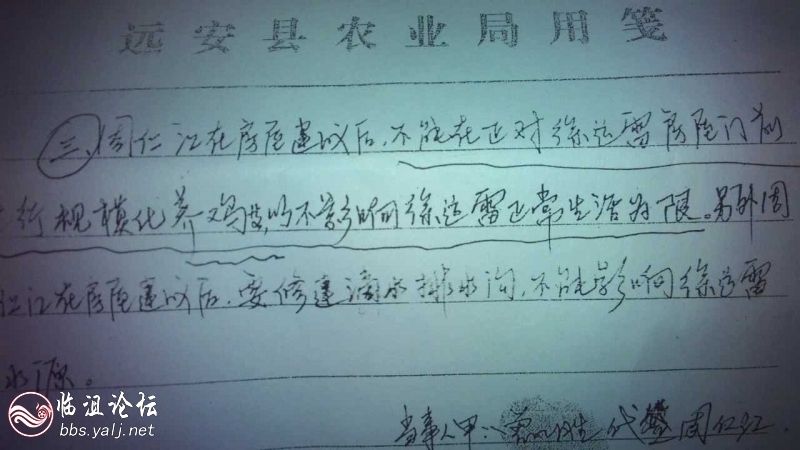 远安县农业局用笺
三、周仁江在房屋建成后,不能在正对徐远雷房屋门前
行规模化养鸡,以不影响徐远雷正常生活为限。另外周
仁江在房屋建成后,要修建滴水排水沟,不能影响徐远雷
水源。
当事人甲: 代 周仁江
临沮论坛
bbs.yalj.net